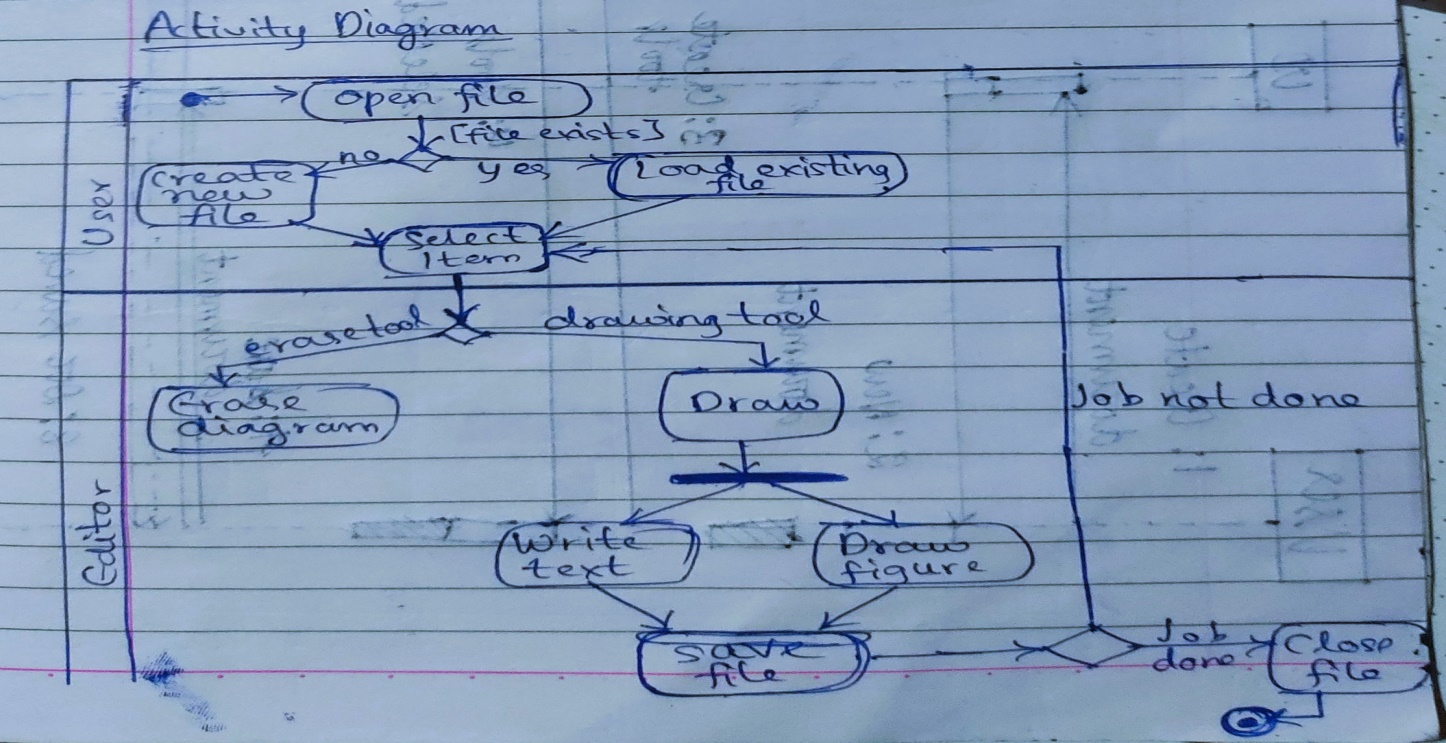 Activity Diagram
User
Open file
[file exists]
no
yes
Create
new
file
Load existing
file
Select
Item
Editor
erase tool
drawing tool
Erase
diagram
Draw
Job not done
Write
text
Draw
figure
Save
file
Job
done
Close
file